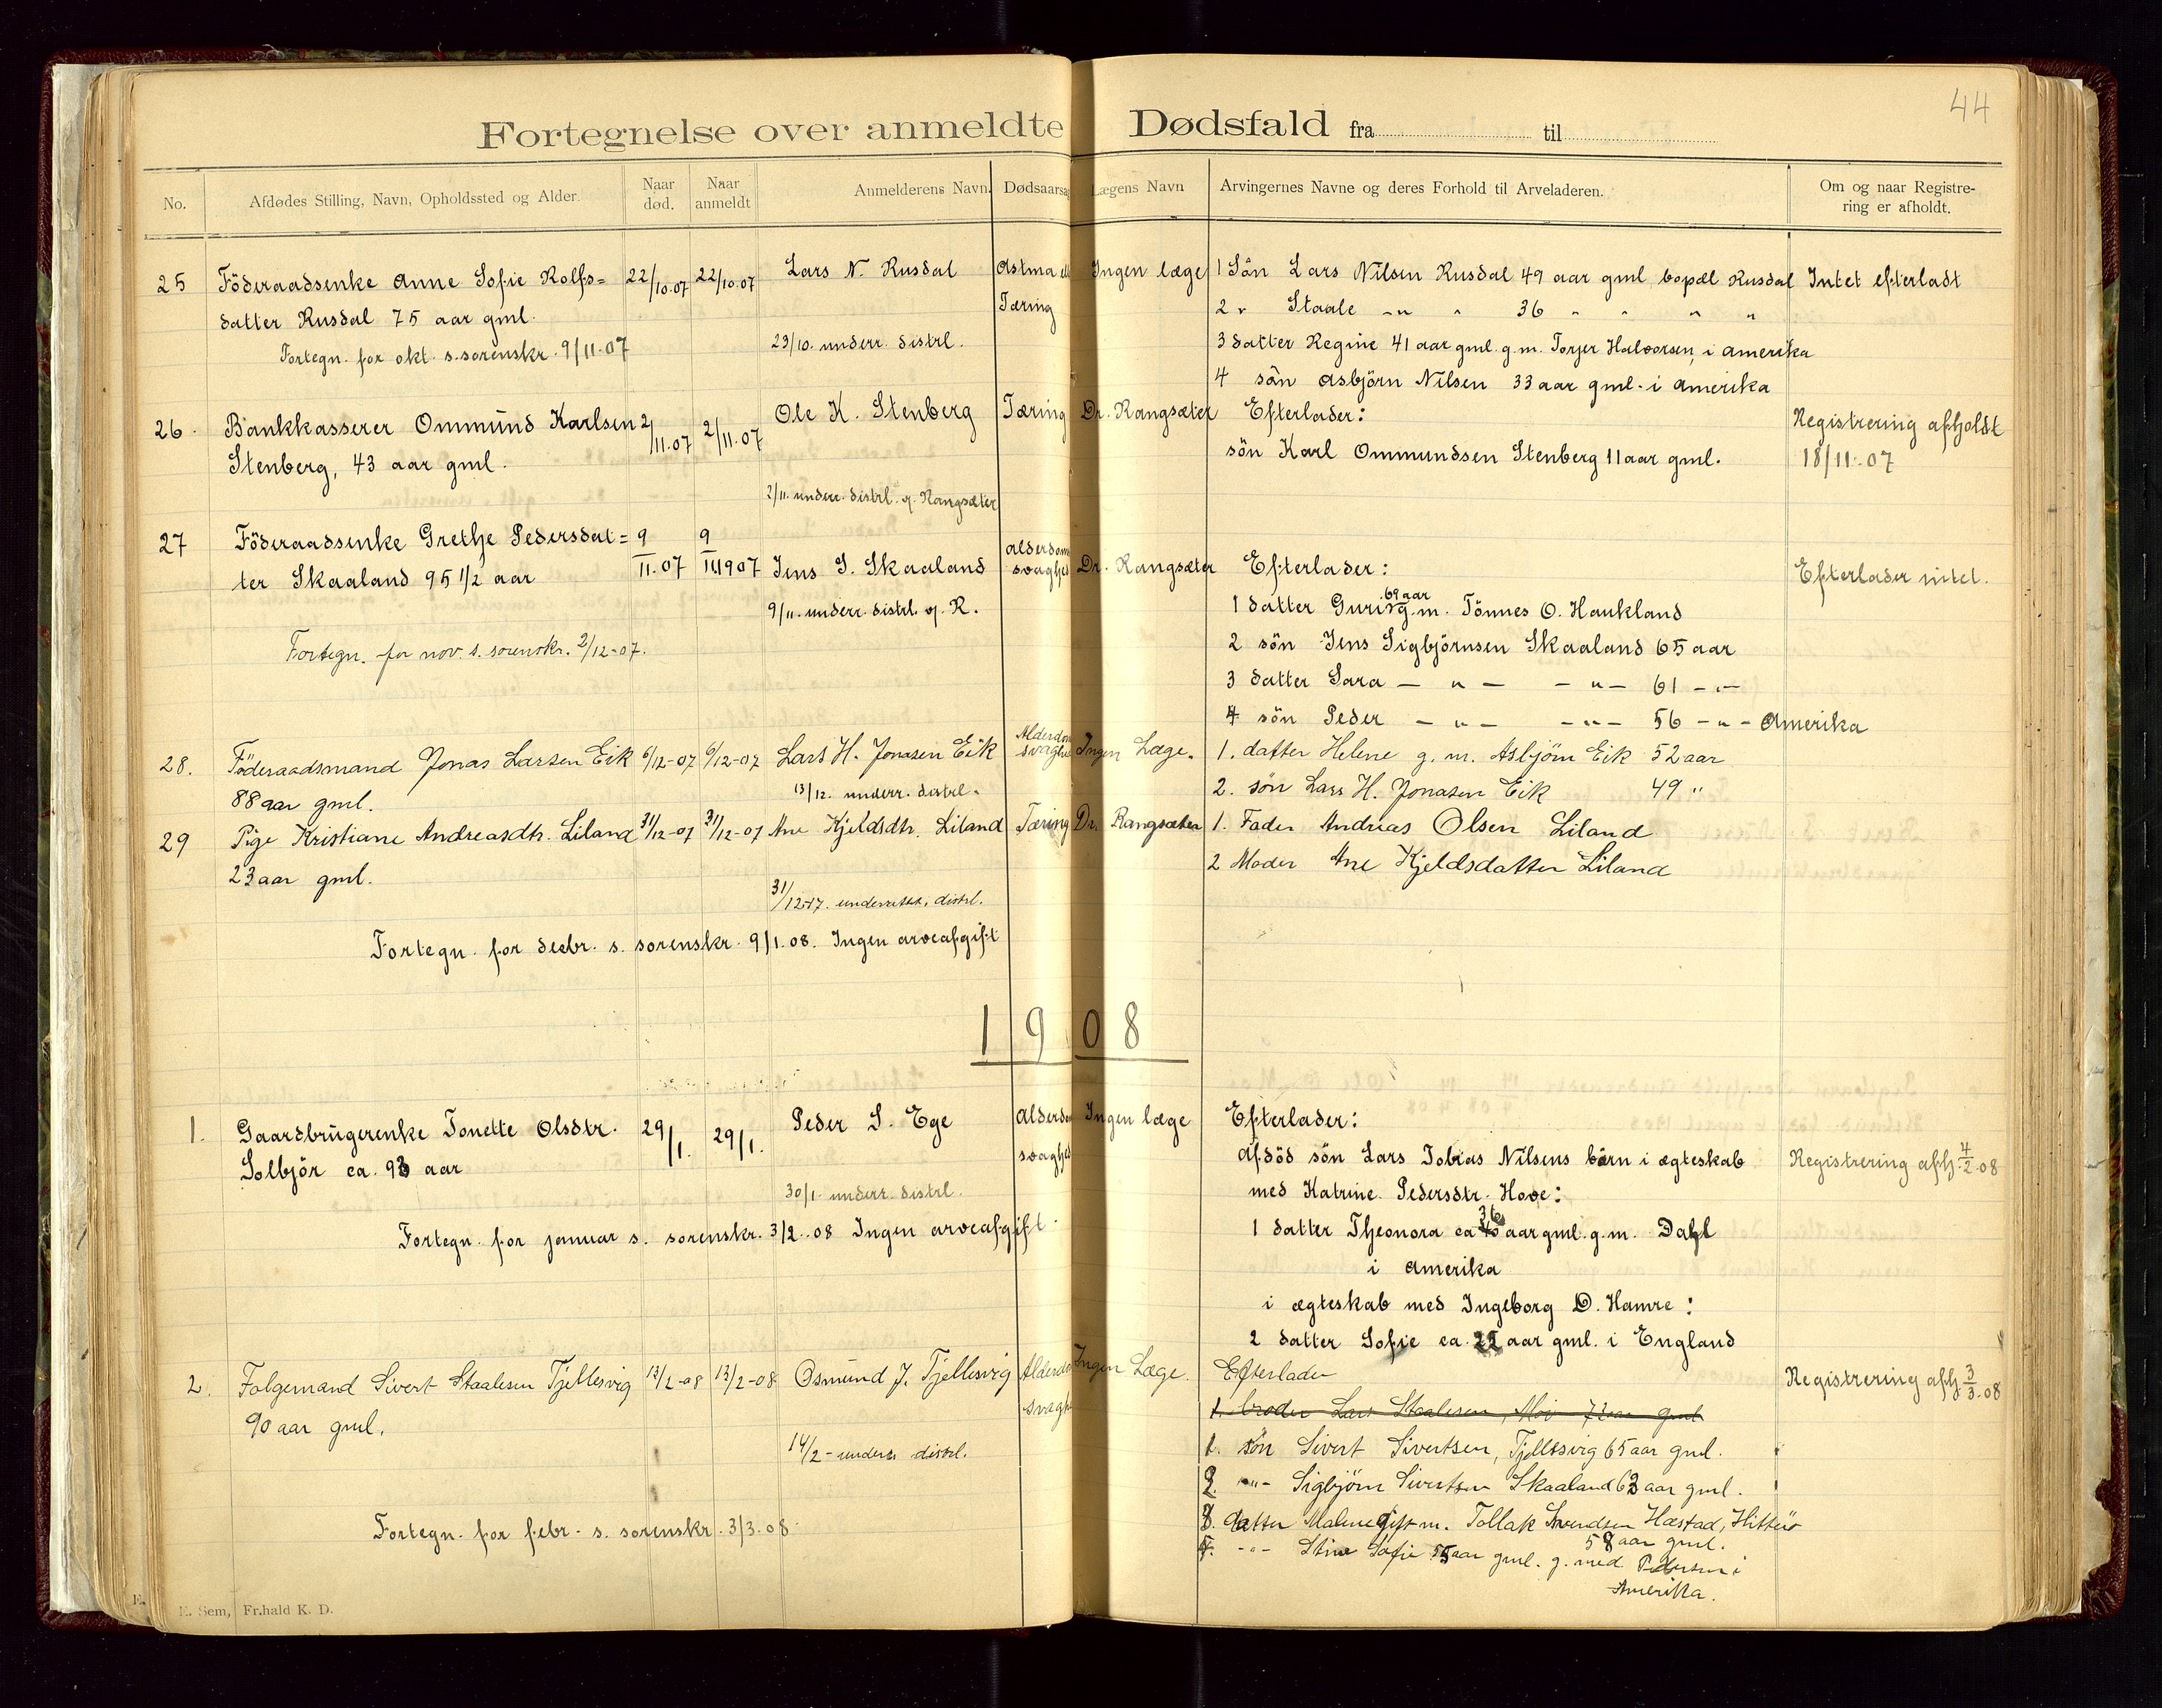 44
Fortegnelse over anmeldte Dødsfald fra til
No.
Afdødes Stilling, Navn, Opholdssted og Alder.
Naar død.
Naar anmeldt
Anmelderens Navn.
Dødsaarsag
Lægens Navn
Arvingernes Navne og deres Forhold til Arveladeren.
Om og naar Registre-
ring er afholdt.
25 Föderaadsenke Anne Sofie Rolfs= 22/10.07 22/10.07 Lars N. Rusdal Astma el Ingen læge 1 Sön Lars Nilsen Rusdal 49 aar gml bopæl Rusdal Intet efterladt
datter Rusdal 75 aar gml. Tæring 2 " Staale -"- " 36 " " " "
Fortegn. for okt. s. sorenskr. 9/11.07 23/10. underr. distrl. 3 datter Regine 41 aar gml. g.m. Torjer Halvorsen, i Amerika
4 sön Asbjörn Nilsen 33 aar gml. i Amerika
26. Bankkasserer Ommund Karlsen 2/11.07 2/11.07 Ole K. Stenberg Tæring Dr. Rangsæter Efterlader: Registrering afholdt
Stenberg, 43 aar gml. sön Karl Ommundsen Stenberg 11 aar gml. 18/11.07
2/11. underr. distrl. og Rangsæter
27 Föderaadsenke Grethe Pedersdat= 9 9
ter Skaaland 95 1/2 aar II.07 II1907 Jens S. Skaaland alderdom svaghed Dr. Rangsæter Efterlader: Efterlader intet.
9/11. underr. distrl. og R. 1 datter Guri 69 aar g.m. Tönnes O. Haukland
2 sön Jens Sigbjörnsen Skaaland 65 aar
Fortegn. for nov. s. sorenskr. 2/12-07.
3 datter Sara — " — — " — 61 — " —
4 sön Peder — " — — " — 56 — " — Amerika
28. Föderaadsmand Jonas Larsen Eik 6/12-07 6/12-07 Lars H. Jonasen Eik Alderdom svaghe Ingen Læge. 1. datter Helene g. m. Asbjörn Eik 52 aar
88 aar gml. 13/12. underr. distrl. 2. sön Lars H. Jonasen Eik 49 "
29 Pige Kristiane Andreasdtr. Liland 31/12-07 31/12-07 Ane Kjeldsdtr. Liland Tæring Dr. Rangsæter 1. Fader Andreas Olsen Liland
23 aar gml. 2 Moder Ane Kjeldsdatter Liland
31/12-17. underrett. distrl.
Fortegn. for decbr. s. sorenskr. 9/1.08. Ingen arveafgift
1908
1. Gaardbrugerenke Tonette Olsdtr. 29/1. 29/1. Peder S. Ege Alderdom Ingen læge Efterlader:
Solbjör ca. 93 aar svaghed afdöd sön Lars Tobias Nilsens börn i ægteskab Registrering afh. 4/2.08
30/1. underr. distrl. med Katrine Pedersdtr. Hove:
Fortegn. for januar s. sorenskr. 3/2..08 Ingen arveafgift. 1 datter Theonora ca 36 aar gml. g.m. Dahl
i Amerika
i ægteskab med Ingeborg D. Hamre:
2 datter Sofie ca. 22 aar gml. i England
2. Folgemand Sivert Staalesen Tjellesvig 13/2-08 13/2-08 Osmund J. Tjellesvig Alderdom Ingen Læge. Efterlader Registrering afh. 3/3.08
90 aar gml. svagh 1. broder Lars Staalesen, Moi 72 aar gml
14/2 - underr. distrl. 1. sön Sivert Sivertsen, Tjellesvig 65 aar gml.
2. -"- Sigbjörn Sivertsen Skaaland 63 aar gml.
Fortegn. for febr. s. sorenskr. 3/3.08. 3. datter Malene gift m. Tollak Svendsen Hæstad, Hitterö
58 aar gml.
4. -"- Stine Sofie 55 aar gml. g. med Pedersen i
Amerika.
E. Sem, Fr.hald K. D.